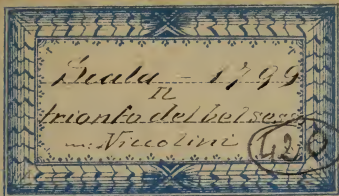 Scala - 1799
IL
trionfo del bel sesso
m: Niccolini
426